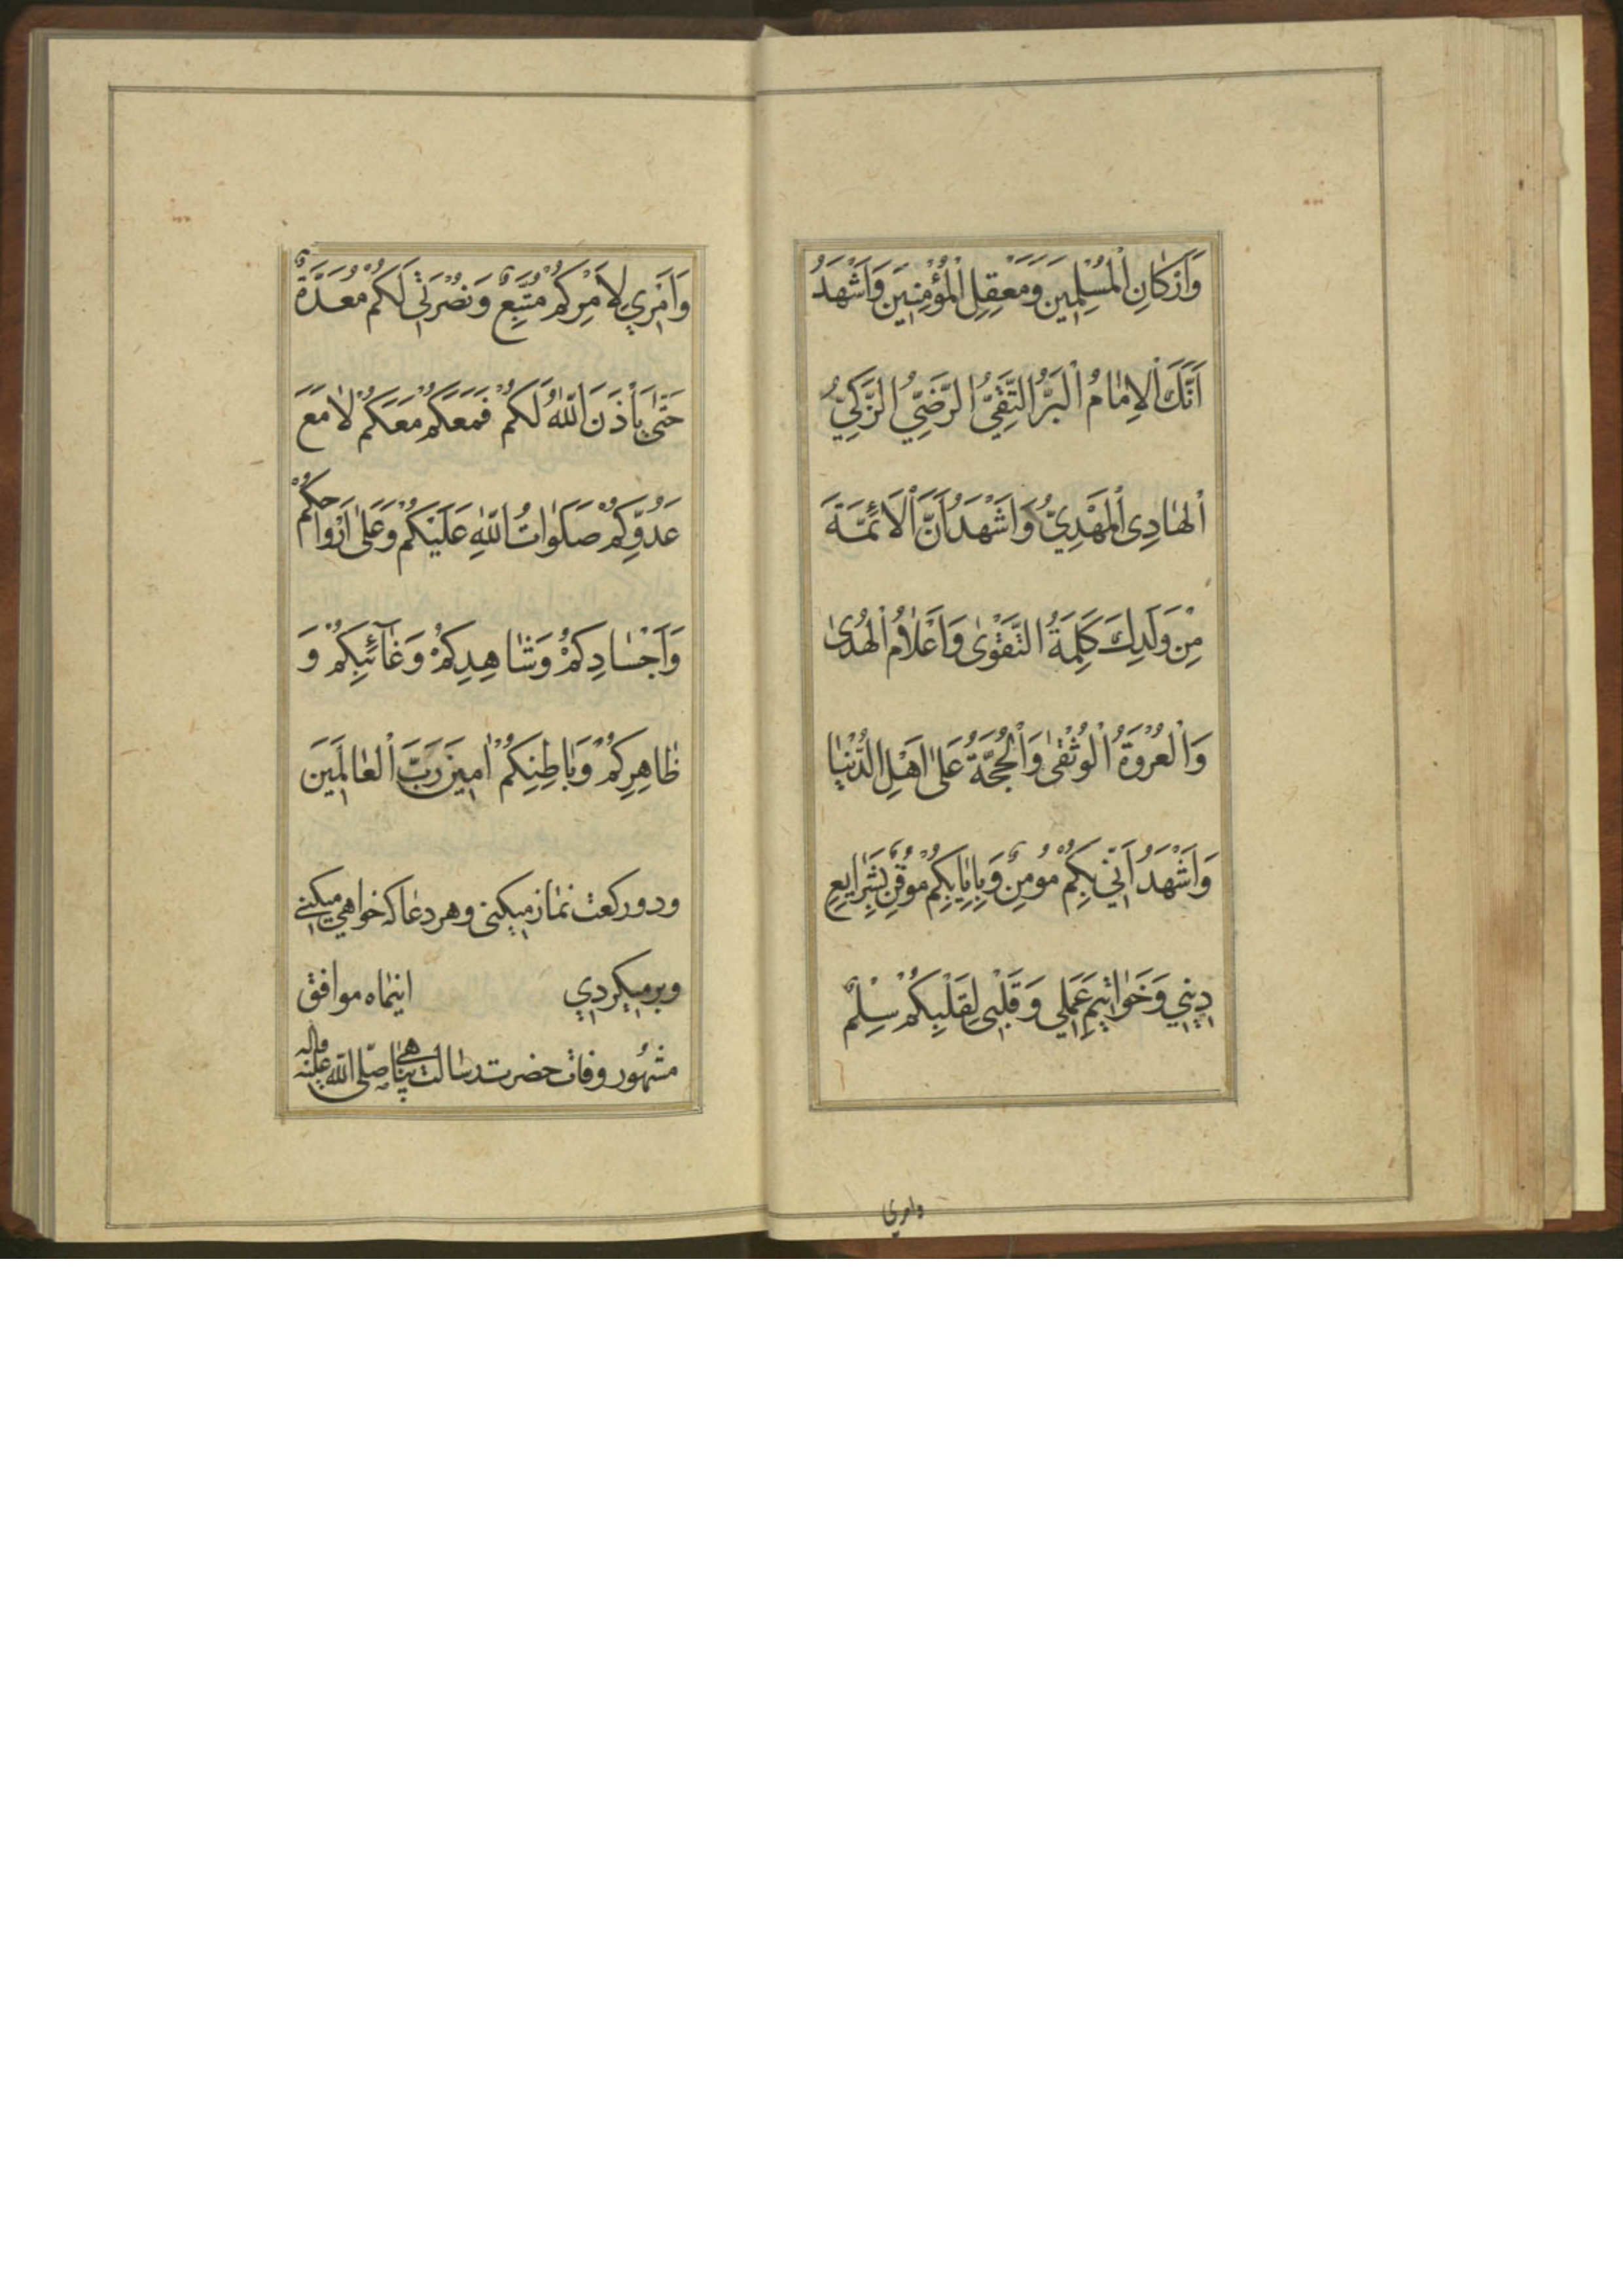 وَاَرْكانِ الْمُسْلِمينَ وَمَعْقِلِ الْمُؤْمِنينَ وَاَشْهَدُ
اَنَّكَ الْاِمامُ الْبَرُّ التَّقِيُّ الرَّضِيُّ الزَّكِيُّ
الْهادِى الْمَهْدِيُّ وَاَشْهَدُ اَنَّ الْاَئِمَّةَ
مِنْ وَلَدِكَ كَلِمَةُ التَّقْوىٰ وَاَعْلامُ الْهُدىٰ
وَالْعُرْوَةُ الْوُثْقىٰ وَالْحُجَّةُ عَلىٰ اَهْلِ الدُّنْيا
وَاَشْهَدُ اَنّي بِكُمْ مُومِنٌ وَبِاِيابِكُمْ مُوقِنٌ بِشَرايِعِ
ديني وَخَواتيمِ عَمَلي وَقَلْبى لِقَلْبِكُمْ سِلْمٌ
وامري
وَاَمْري لِاَمْرِكُمْ مُتَّبِعٌ وَنُصْرَتي لَكُمْ مُعَدَّةٌ
حَتّىٰ يَأْذَنَ اللّٰهُ لَكُمْ فَمَعَكُمْ مَعَكُمْ لا مَعَ
عَدُوِّكُمْ صَلَواتُ اللّٰهِ عَلَيْكُمْ وَعَلىٰ اَرْواحِكُمْ
وَاَجْسادِكُمْ وَشاهِدِكُمْ وَغآئِبِكُمْ وَ
ظاهِرِكُمْ وَباطِنِكُمْ امينَ رَبَّ الْعالَمينَ
ودو ركعت نماز ميكنى وهر دعا كه خواهي ميكني
وبرميكردي اينماه موافق
مشهور وفات حضرت رسالت پناهي صلّى اللّه عليه واله